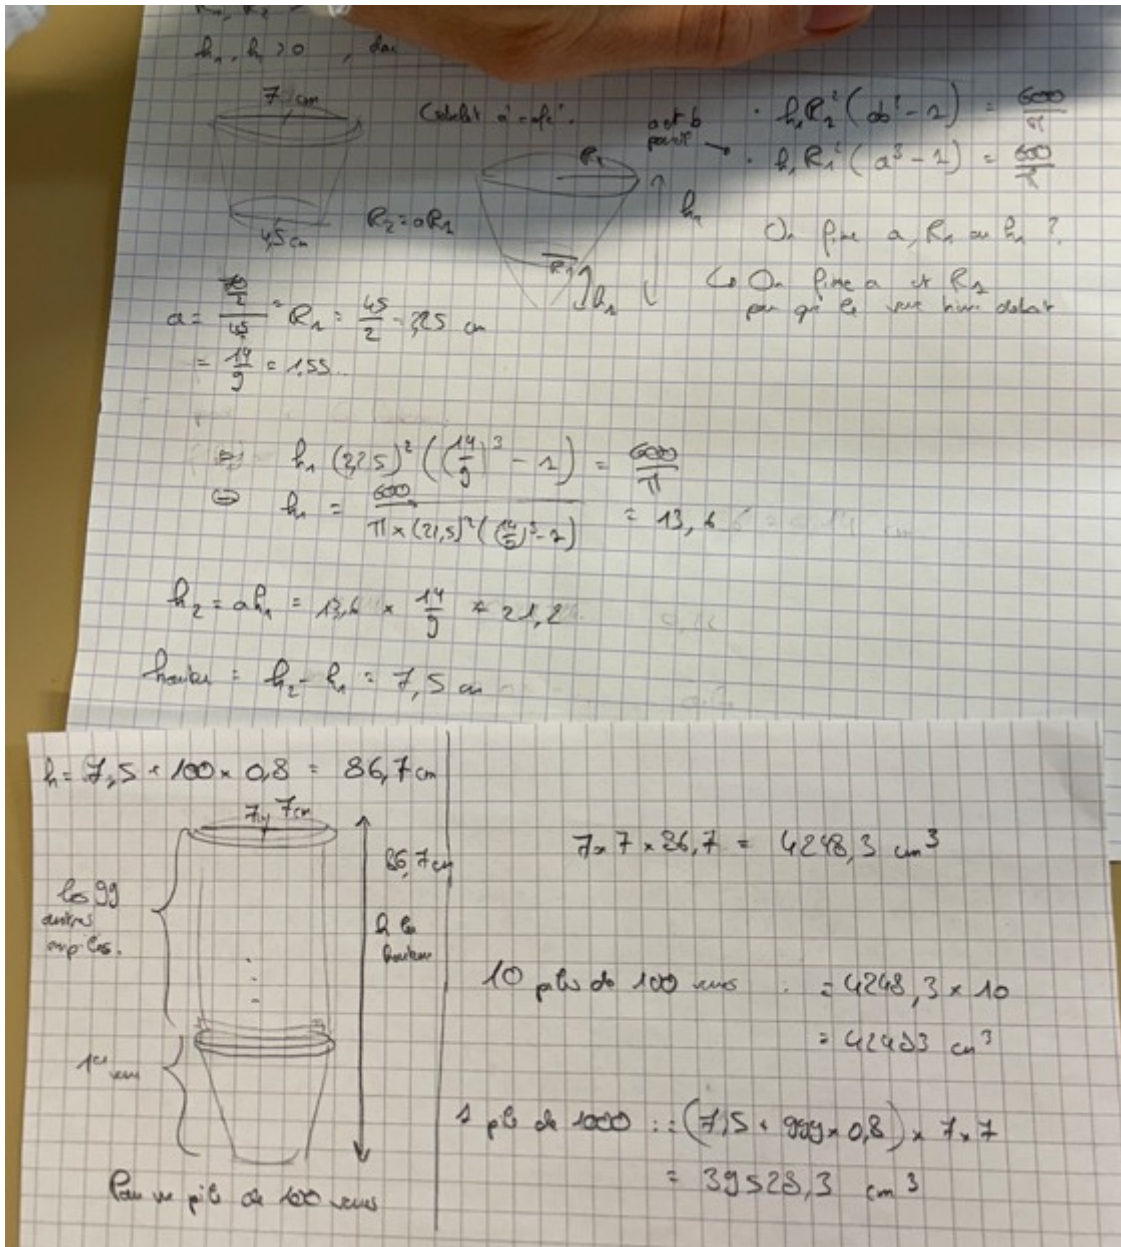 h₁, h₂ > 0
7 cm
4,5 cm
R₂ = aR₁
h₁
a et b
h₁R₁²(a³ - 1) = 600/π
On fixe a, R₁ ou h₁ ?
↳ On fixe a et R₁
pour que le
a =
R₁ = 45/2 = 2,25 cm
= 14/9 = 1,55...
h₁ (2,25)² ((14/9)³ - 1) = 600/π
⇔ h₁ = 600 / (π × (21,5)² ((14/9)³ - 1)) = 13,6
h₂ = ah₁ = 13,6 × 14/9 = 21,2
hauteur = h₂ - h₁ = 7,5 cm
h = 7,5 + 100 × 0,8 = 86,7 cm
7 cm
86,7 cm
h la
hauteur
les 99
autres
empilés.
1er
verre
Pour une pile de 100 verres
7 × 7 × 86,7 = 4248,3 cm³
10 piles de 100 verres = 4248,3 × 10
= 42483 cm³
1 pile de 1000 : = (7,5 + 999 × 0,8) × 7 × 7
= 39528,3 cm³